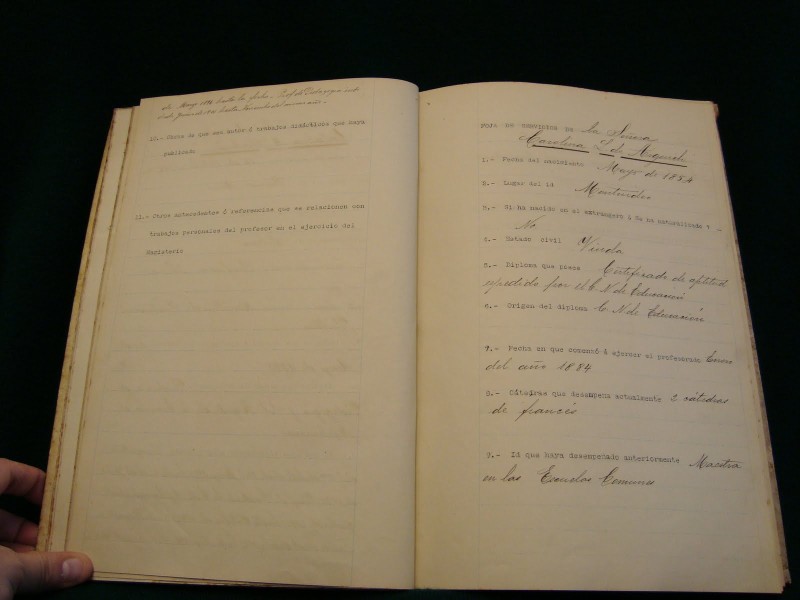 de Mayo 1896 hasta la fecha. Prof. de Pedagogía
10.- Obras de que sea autor ó trabajos didácticos que haya
publicado
11.- Otros antecedentes ó referencias que se relacionen con
trabajos personales del profesor en el ejercicio del
Magisterio
FOJA DE SERVICIOS DE la Señora
Carolina L. de
1.- Fecha del nacimiento Mayo de 1854
2.- Lugar del id Montevideo
3.- Si ha nacido en el extranjero ó Se ha naturalizado? -
No
4.- Estado civil Viuda
5.- Diploma que posee Certificado de aptitud
espedido por el C. N. de Educación
6.- Origen del diploma C. N. de Educación
7.- Fecha en que comenzó á ejercer el profesorado Enero
del año 1884
8.- Cátedras que desempeña actualmente 2 cátedras
de francés
9.- Id que haya desempeñado anteriormente Maestra
en las Escuelas Comunes